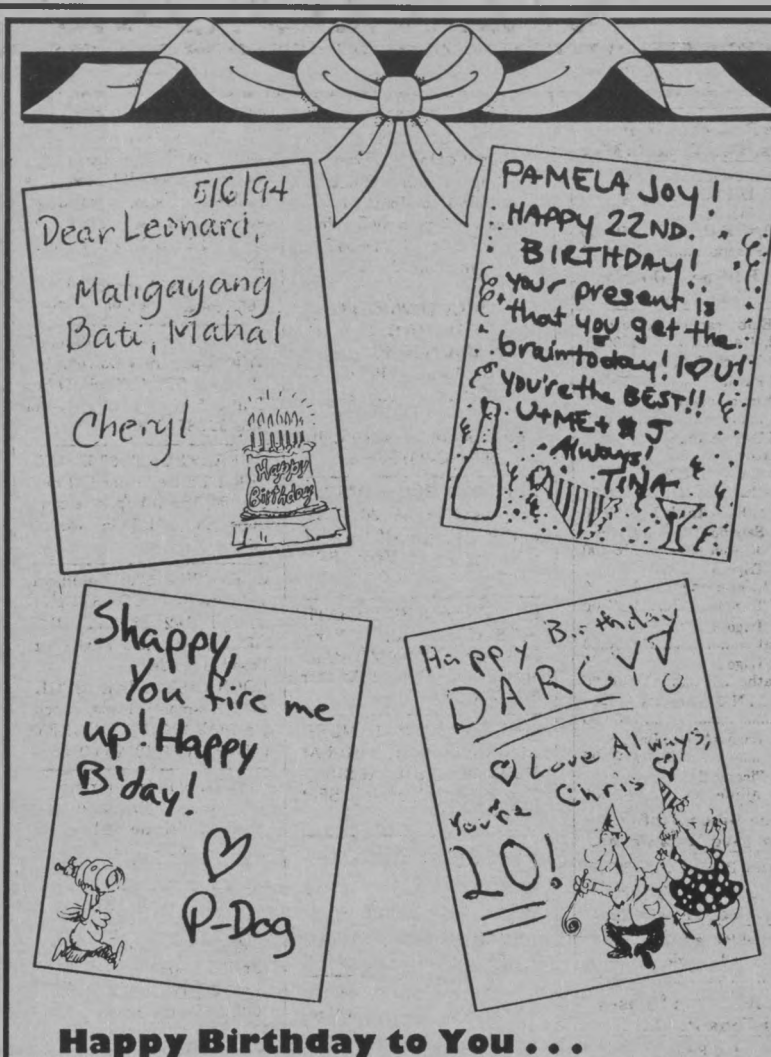 5/6/94
Dear Leonard,
Maligayang
Bati, Mahal
Cheryl
Happy
Birthday
PAMELA JOY!
HAPPY 22ND
BIRTHDAY!
your present is
that you get the
brain today! I ♡ U!
You're the BEST!!
U + ME + $ J
Always!
TINA
Shappy,
You fire me
up! Happy
B'day!
♡
P-Dog
Happy Birthday
DARCY!
♡ Love Always,
Chris ♡
You're
20!
Happy Birthday to You . . .